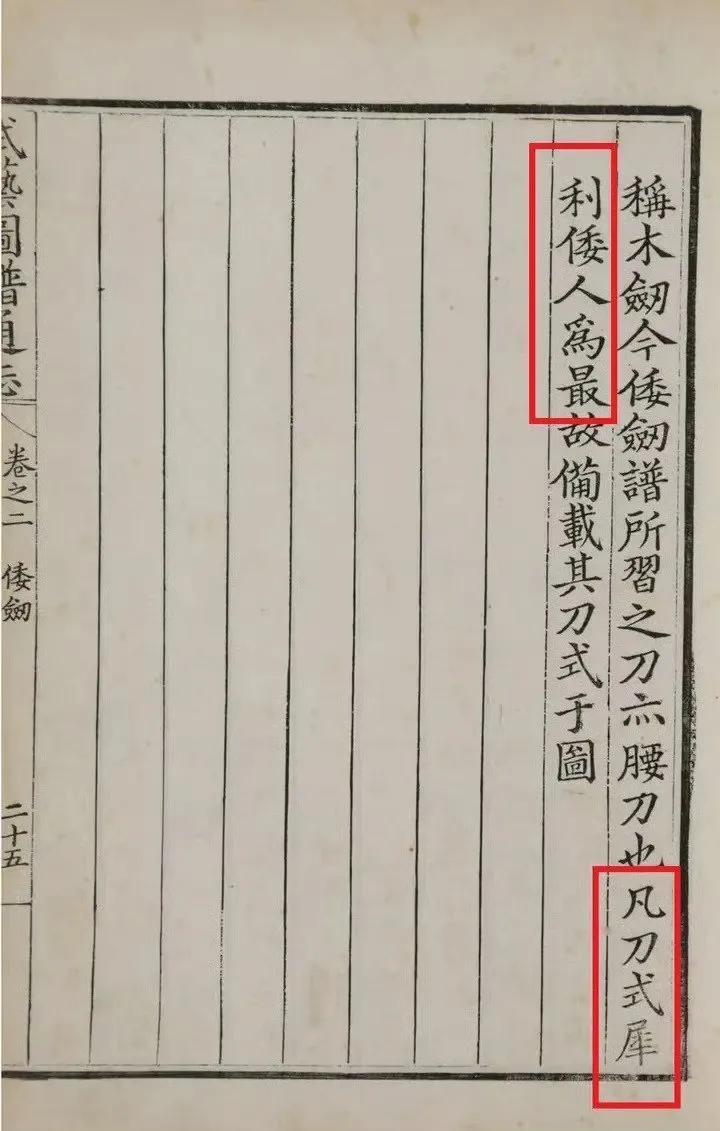 稱木劔今倭劔譜所習之刀亦腰刀也凡刀式犀
利倭人爲最故備載其刀式于圖
武藝圖譜通志
卷之二
倭劔
二十五